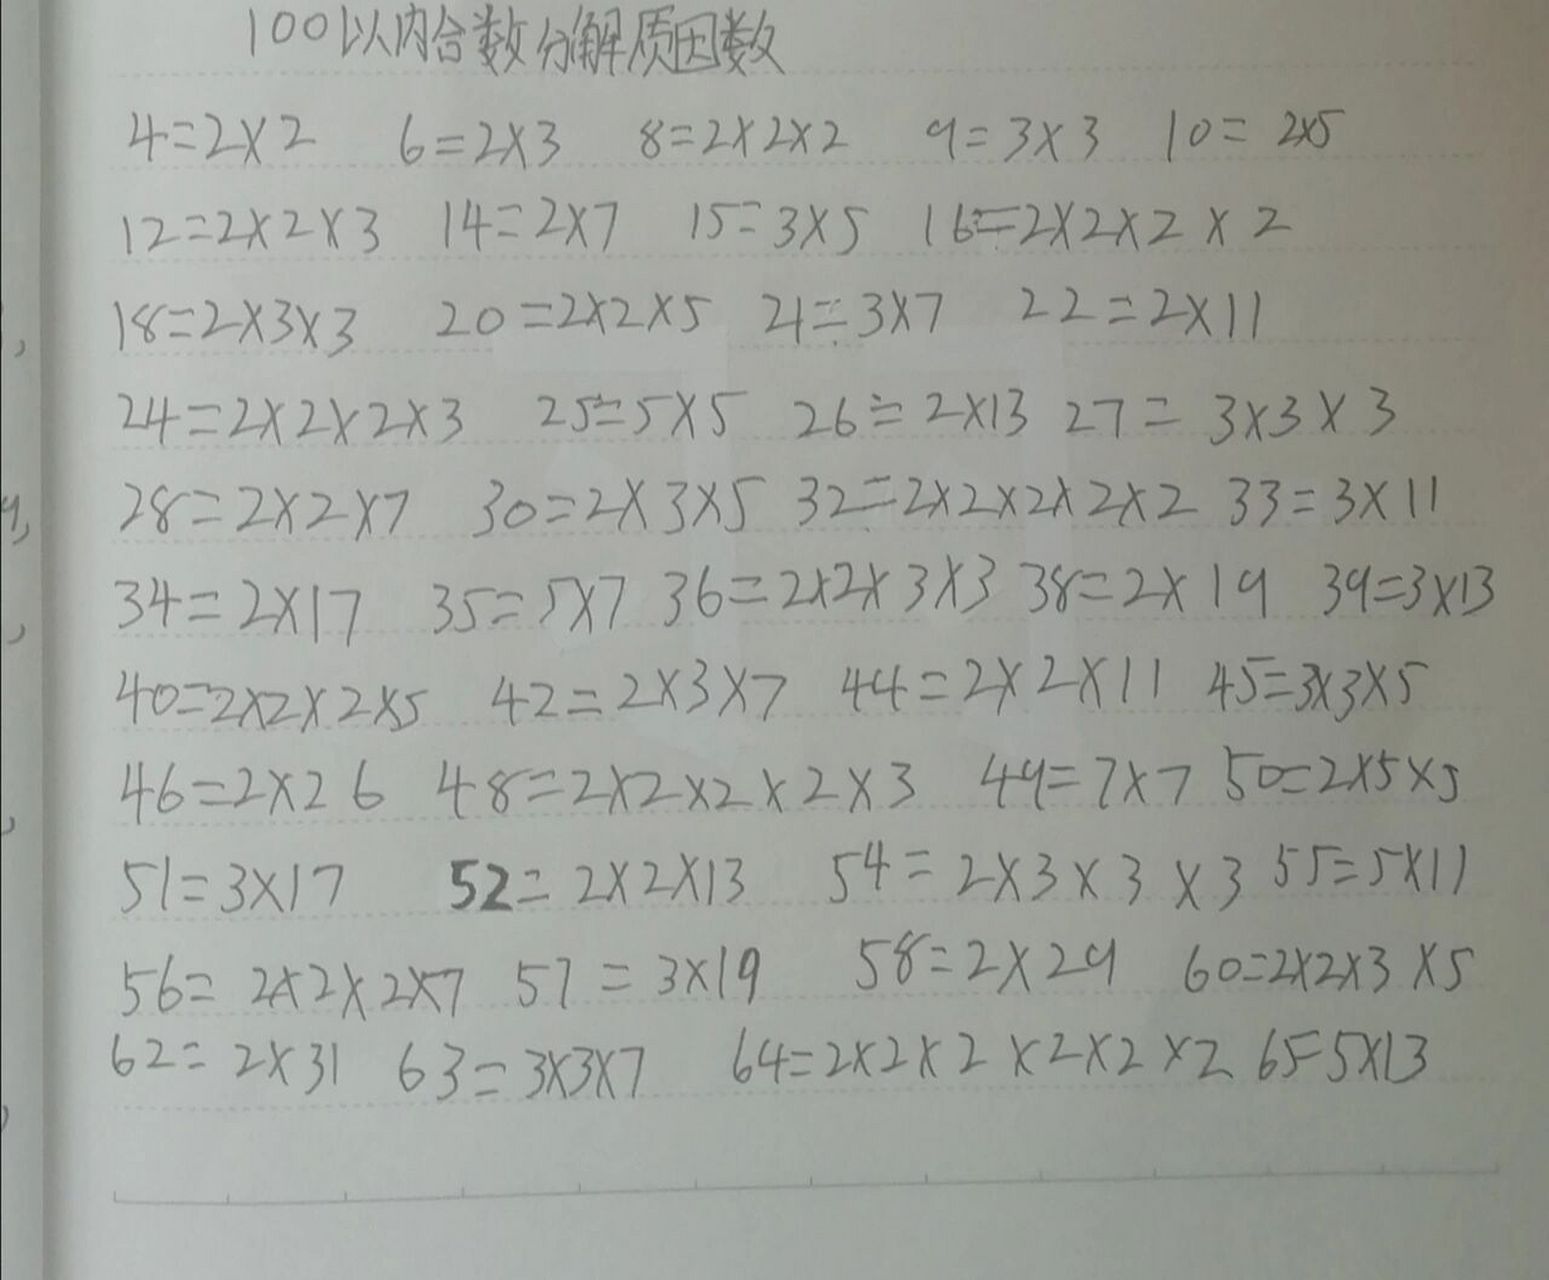 100以内合数分解质因数
4=2×2 6=2×3 8=2×2×2 9=3×3 10=2×5
12=2×2×3 14=2×7 15=3×5 16=2×2×2×2
18=2×3×3 20=2×2×5 21=3×7 22=2×11
24=2×2×2×3 25=5×5 26=2×13 27=3×3×3
28=2×2×7 30=2×3×5 32=2×2×2×2×2 33=3×11
34=2×17 35=5×7 36=2×2×3×3 38=2×19 39=3×13
40=2×2×2×5 42=2×3×7 44=2×2×11 45=3×3×5
46=2×26 48=2×2×2×2×3 49=7×7 50=2×5×5
51=3×17 52=2×2×13 54=2×3×3×3 55=5×11
56=2×2×2×7 57=3×19 58=2×29 60=2×2×3×5
62=2×31 63=3×3×7 64=2×2×2×2×2×2 65=5×13